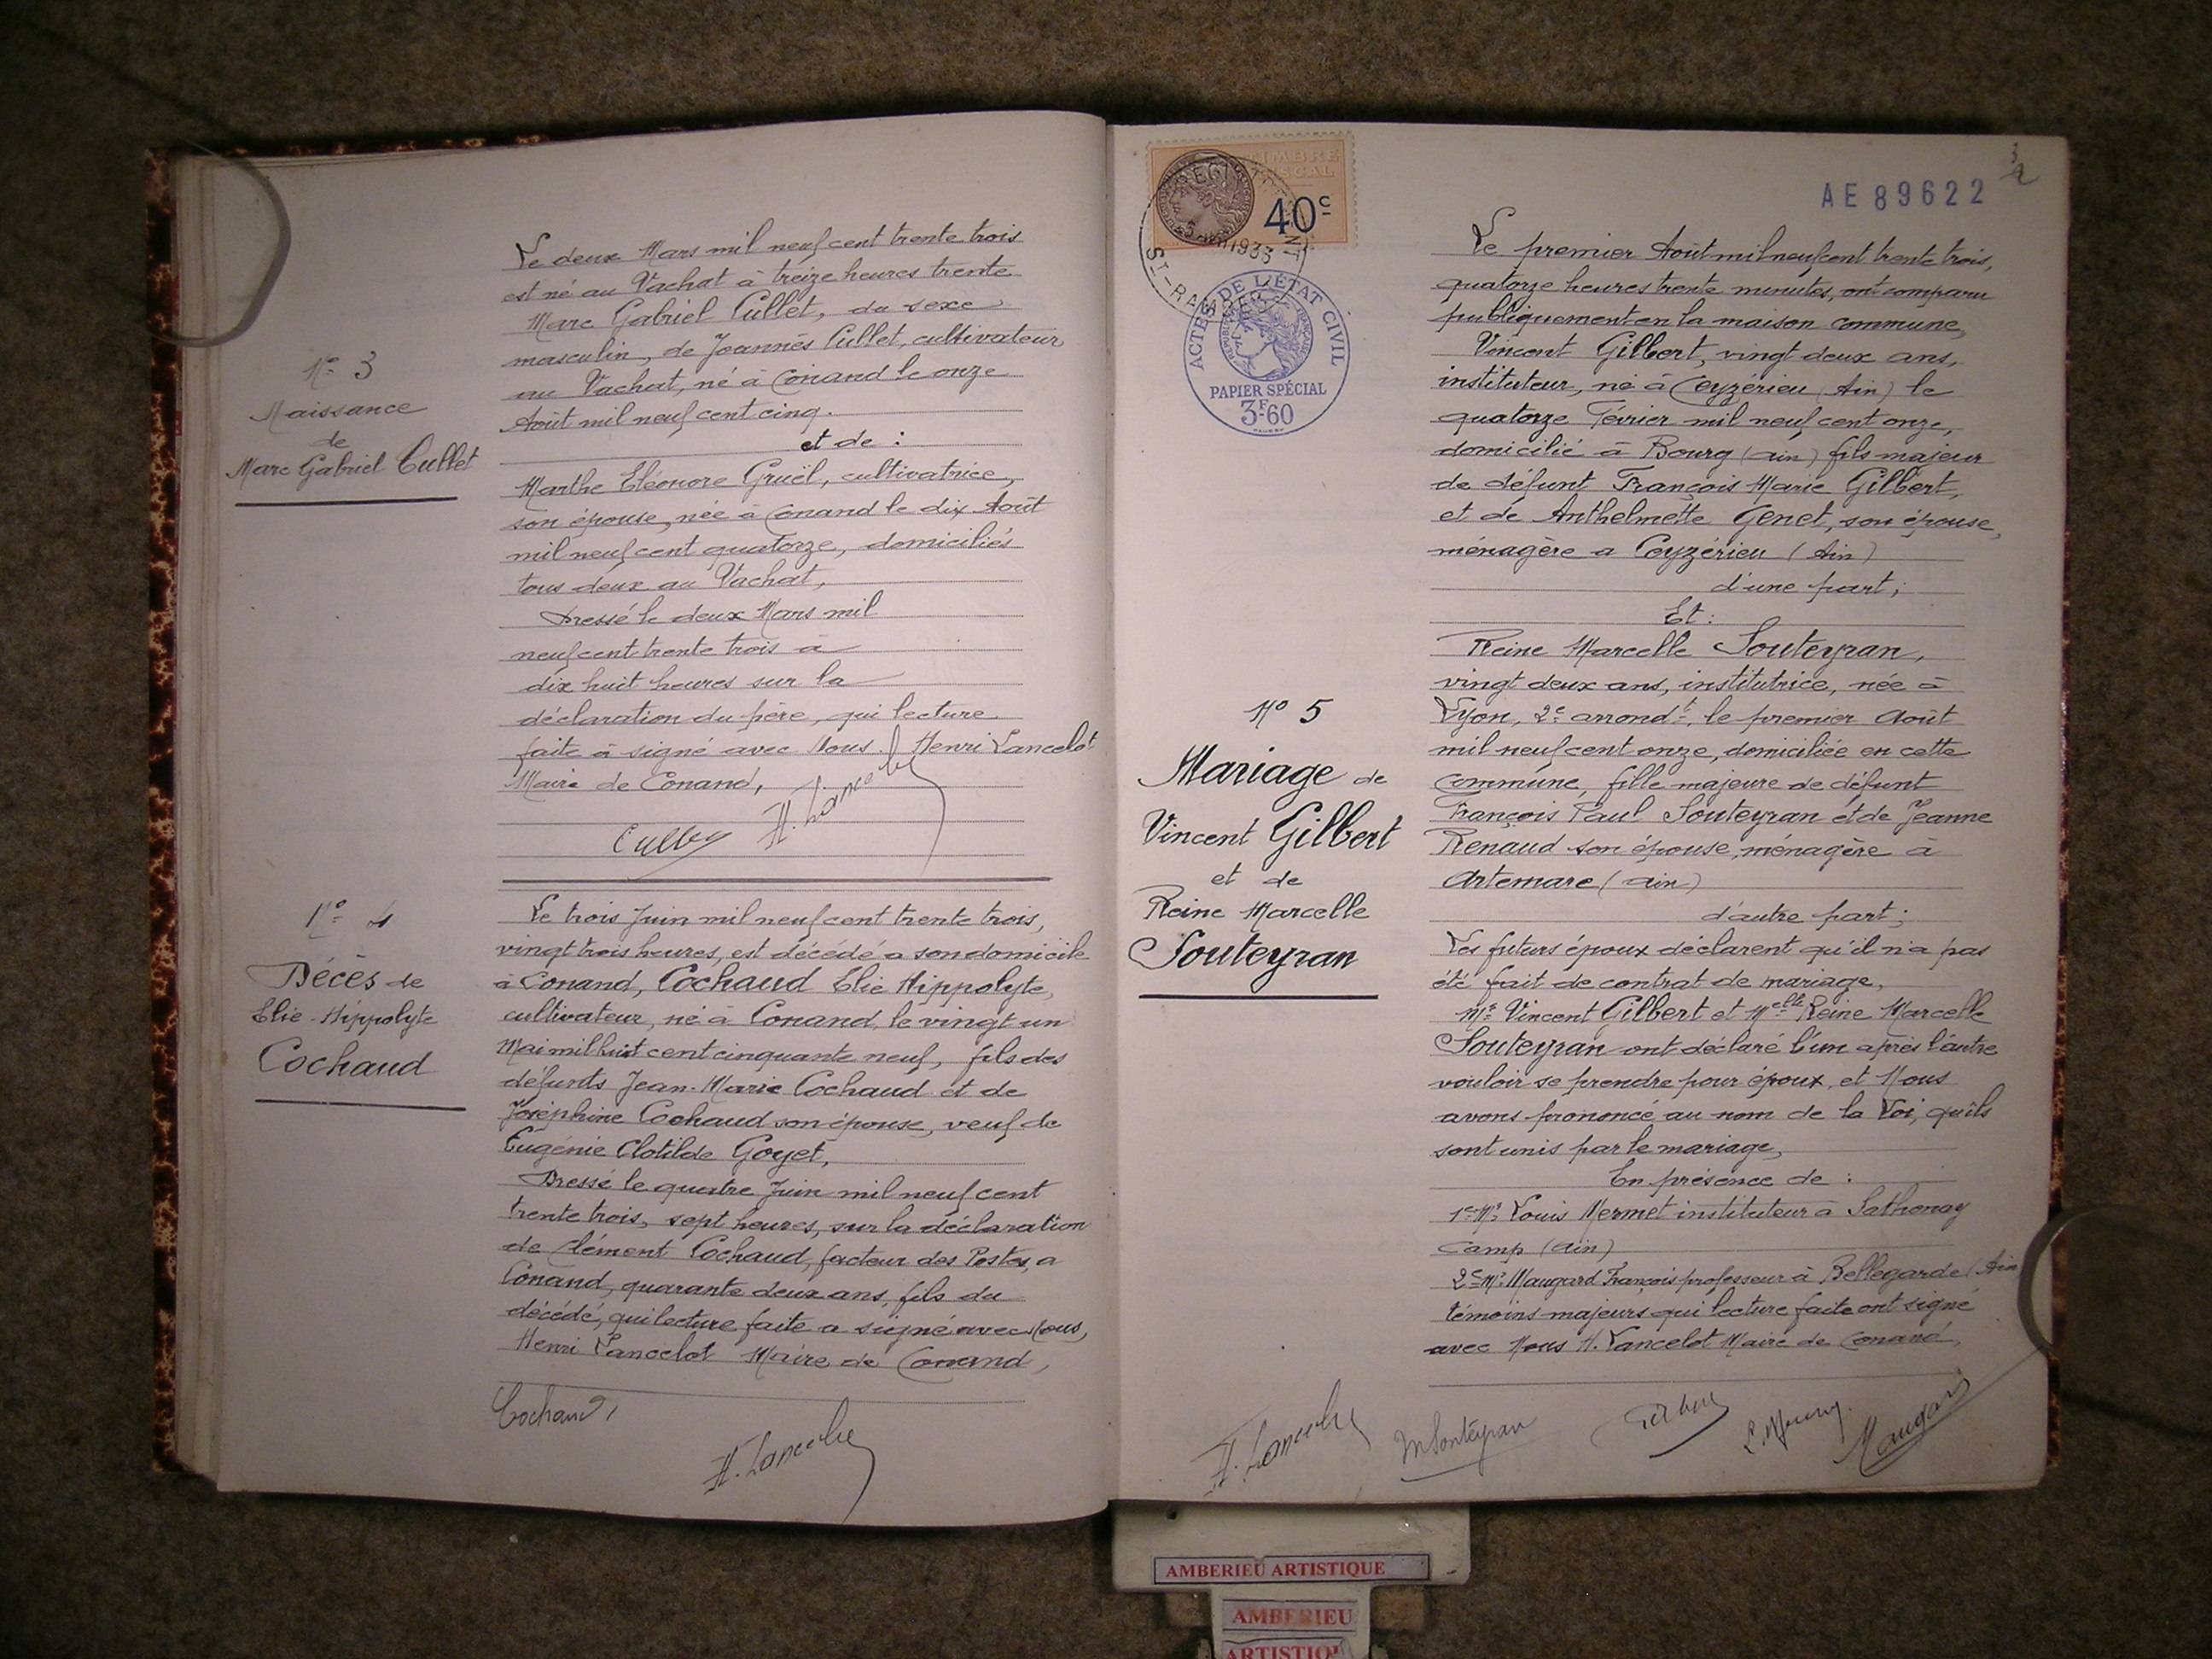 Nº 3
Naissance
de
Marc Gabriel Cullet
Le deux Mars mil neuf cent trente trois
est né au Vachat à treize heures trente
Marc Gabriel Cullet, du sexe
masculin, de Joannès Cullet, cultivateur
au Vachat, né à Conand le onze
Août mil neuf cent cinq.
et de :
Marthe Eléonore Gruël, cultivatrice,
son épouse, née à Conand le dix Août
mil neuf cent quatorze, domiciliés
tous deux au Vachat,
Dressé le deux Mars mil
neuf cent trente trois à
dix huit heures sur la
déclaration du père, qui lecture
faite à signé avec Nous. Henri Lancelot
Maire de Conand,
Cullet H. Lancelot
Nº 4
Décès de
Elie-Hippolyte
Cochaud
Le trois Juin mil neuf cent trente trois,
vingt trois heures, est décédé a son domicile
à Conand, Cochaud Elie Hippolyte,
cultivateur, né à Conand, le vingt un
Mai mil huit cent cinquante neuf, fils des
défunts Jean-Marie Cochaud et de
Joséphine Cochaud son épouse, veuf de
Eugénie Clotilde Goyet,
Dressé le quatre Juin mil neuf cent
trente trois, sept heures, sur la déclaration
de Clément Cochaud, facteur des Postes, a
Conand, quarante deux ans, fils du
décédé, qui lecture faite a signé avec Nous,
Henri Lancelot Maire de Conand,
Cochaud,
H. Lancelot
TIMBRE
FISCAL
40c
1933
ST-RAMBERT
ACTES DE L'ÉTAT CIVIL
PAPIER SPÉCIAL
3F60
AE 89622
Nº 5
Mariage de
Vincent Gilbert
et de
Reine Marcelle
Souteyran
Le premier Août mil neuf cent trente trois,
quatorze heures trente minutes, ont comparu
publiquement en la maison commune,
Vincent Gilbert, vingt deux ans,
instituteur, né à Ceyzérieu (Ain) le
quatorze Février mil neuf cent onze,
domicilié à Bourg (ain) fils majeur
de défunt François Marie Gilbert,
et de Anthelmette Genet, son épouse,
ménagère a Ceyzérieu (Ain)
d'une part;
Et :
Reine Marcelle Souteyran,
vingt deux ans, institutrice, née à
Lyon, 2e arrondt, le premier Août
mil neuf cent onze, domiciliée en cette
commune, fille majeure de défunt
François Paul Souteyran et de Jeanne
Renaud son épouse, ménagère à
Artemare (ain)
d'autre part;
Les futurs époux déclarent qu'il n'a pas
été fait de contrat de mariage,
Mr Vincent Gilbert et Melle Reine Marcelle
Souteyran ont déclaré l'un après l'autre
vouloir se prendre pour époux, et Nous
avons prononcé au nom de la Loi, qu'ils
sont unis par le mariage,
En présence de :
1e Mr Louis Mermet instituteur à Sathonay
Camp (ain)
2e Mr Maugard François professeur à Bellegarde (Ain
témoins majeurs qui lecture faite ont signé
avec Nous H. Lancelot Maire de Conand,
H. Lancelot MSouteyran Gilbert L. Mermet Maugard
AMBERIEU ARTISTIQUE
AMBERIEU